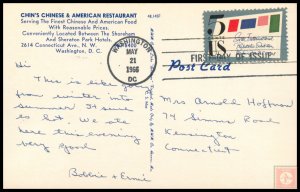 CHIN'S CHINESE & AMERICAN RESTAURANT
Serving The Finest Chinese And American Food
With Reasonable Prices.
Conveniently Located Between The Shoreham
And Sheraton Park Hotels.
2614 Connecticut Ave., N. W.
Washington, D. C.
WASHINGTON
MAY
21
1966
DC
5
US
FIRST DAY OF ISSUE
Post Card
Hi
This is like you
from winter into
summer
so hot. We ate
here this evening
very good
Bobbie & Ernie
Mrs Arnold Hoffman
74 Sumner Road
Kensington
Connecticut